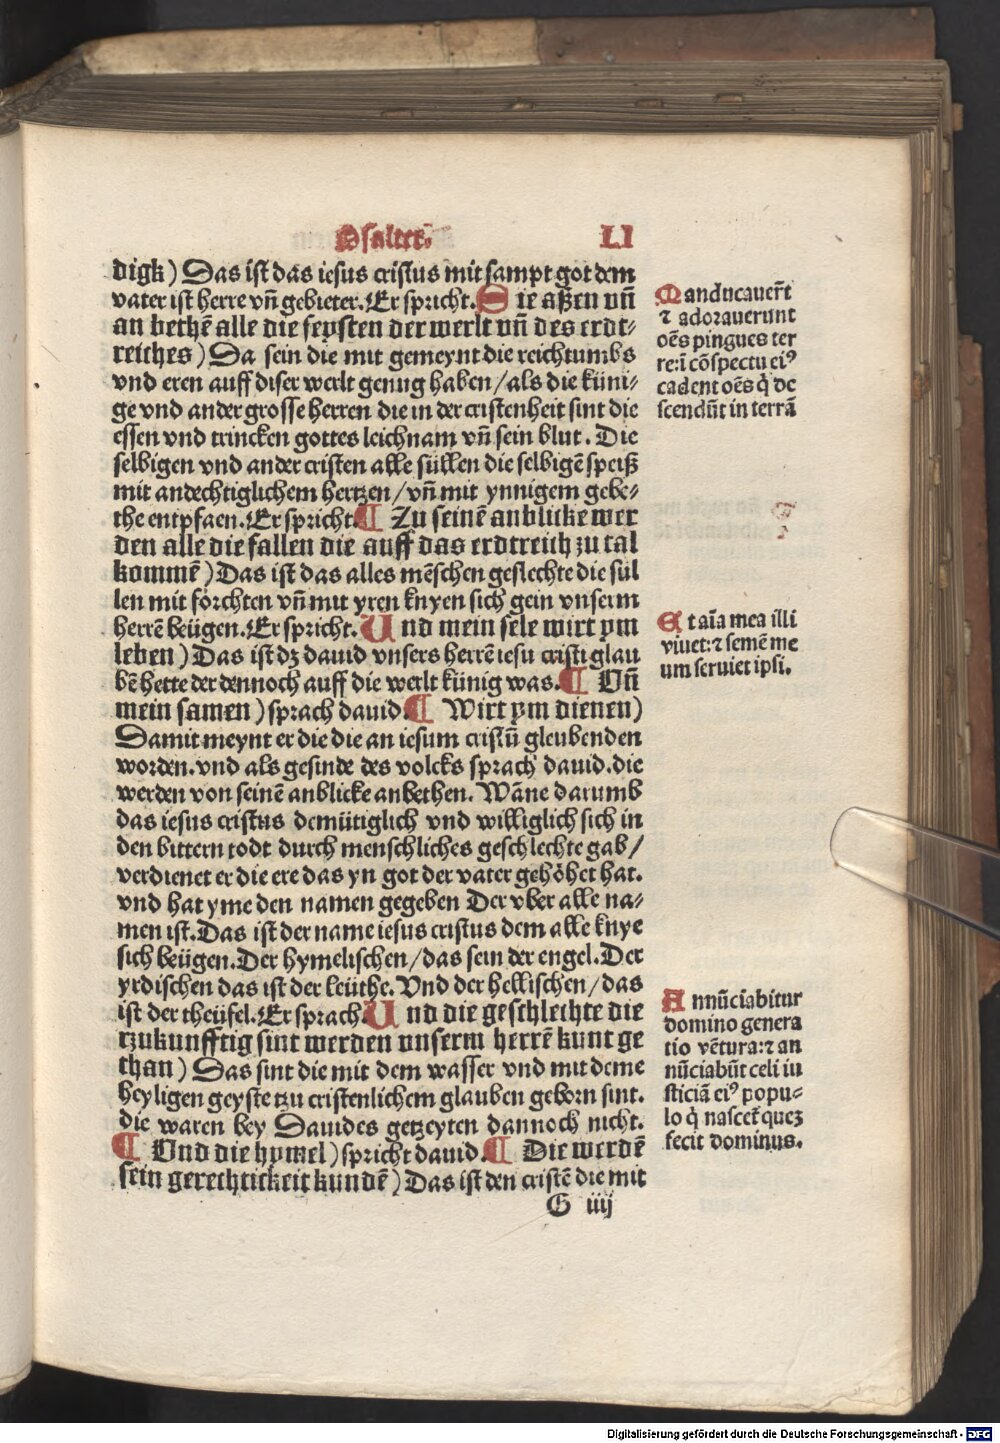 Psalter. LI
digk) Das ist das iesus cristus mit sampt got dem
vater ist herre vñ gebieter. Er spricht. Sie aßen vñ
an bethē alle die feysten der werlt vñ des erdt⸗
reiches) Da sein die mit gemeynt die reichtumbs
vnd eren auff diser werlt genug haben/als die küni⸗
ge vnd ander grosse herren die in der cristenheit sint die
essen vnd trincken gottes leichnam vñ sein blut. Die
selbigen vnd ander cristen alle süllen die selbigē speiß
mit andechtiglichem hertzen/vñ mit ynnigem gebe⸗
the entpfaen. Er spricht. ¶ Zu seinē anblicke wer
den alle die fallen die auff das erdtreich zu tal
kommē) Das ist das alles mēschen geslechte die sül
len mit forchten vñ mit yren knyen sich gein vnserm
herrē beügen. Er spricht. Und mein sele wirt ym
leben) Das ist dz dauid vnsers herrē iesu cristi glau
bē hette der dennoch auff die werlt künig was. ¶ Vñ
mein samen) sprach dauid. ¶ Wirt ym dienen)
Damit meynt er die die an iesum cristū gleubenden
worden. vnd als gesinde des volcks sprach dauid. die
werden von seinē anblicke anbethen. Wāne darumb
das iesus cristus demütiglich vnd williglich sich in
den bittern todt durch menschliches geschlechte gab/
verdienet er die ere das yn got der vater gehöhet hat.
vnd hat yme den namen gegeben Der vber alle na⸗
men ist. Das ist der name iesus cristus dem alle knye
sich beügen. Der hymelischen/das sein der engel. Der
yrdischen das ist der leüthe. Vnd der hellischen/das
ist der theüfel. Er sprach. Und die geschlechte die
tzukunfftig sint werden vnserm herrē kunt ge
than) Das sint die mit dem wasser vnd mit deme
heyligen geyste tzu cristenlichem glauben geborn sint.
die waren bey Dauides getzeyten dannoch nicht.
¶ Vnd die hymel) spricht dauid. ¶ Die werdē
sein gerechtickeit kundē) Das ist den cristē die mit
G iiij
Manducauer̃t
⁊ adorauerunt
oēs pingues ter
re: ī cōspectu eiꝰ
cadent oēs q̇ de
scendūt in terrā
Et aīa mea illi
viuet: ⁊ semē me
um seruiet ipsi.
Annūciabitur
domino genera
tio vētura: ⁊ an
nūciabūt celi iu
sticiā eiꝰ popu⸗
lo q̇ nascet̃ quez
fecit dominus.
Digitalisierung gefördert durch die Deutsche Forschungsgemeinschaft - DFG